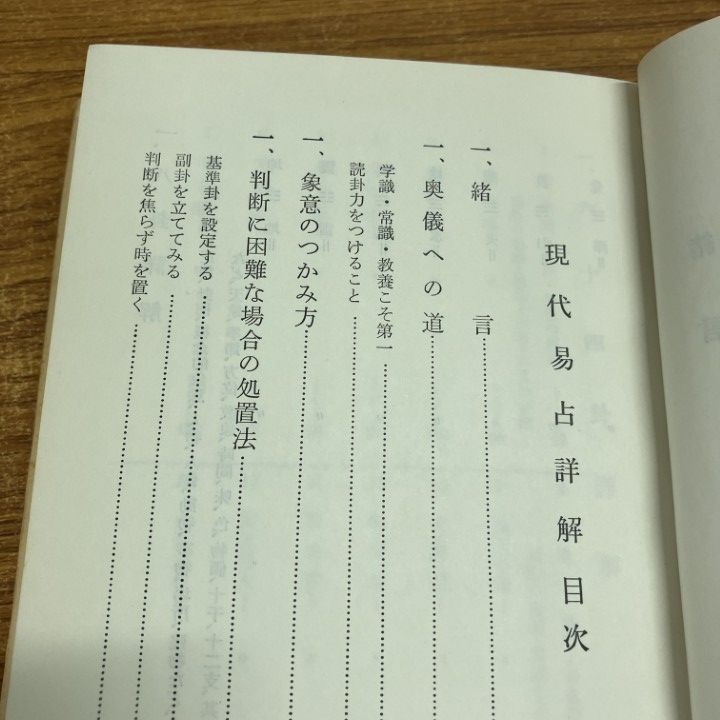 現代易占詳解目次
一、緒言
一、奥儀への道
学識・常識・教養こそ第一
読卦力をつけること
一、象意のつかみ方
一、判断に困難な場合の処置法
基準卦を設定する
副卦を立ててみる
判断を焦らず時を置く